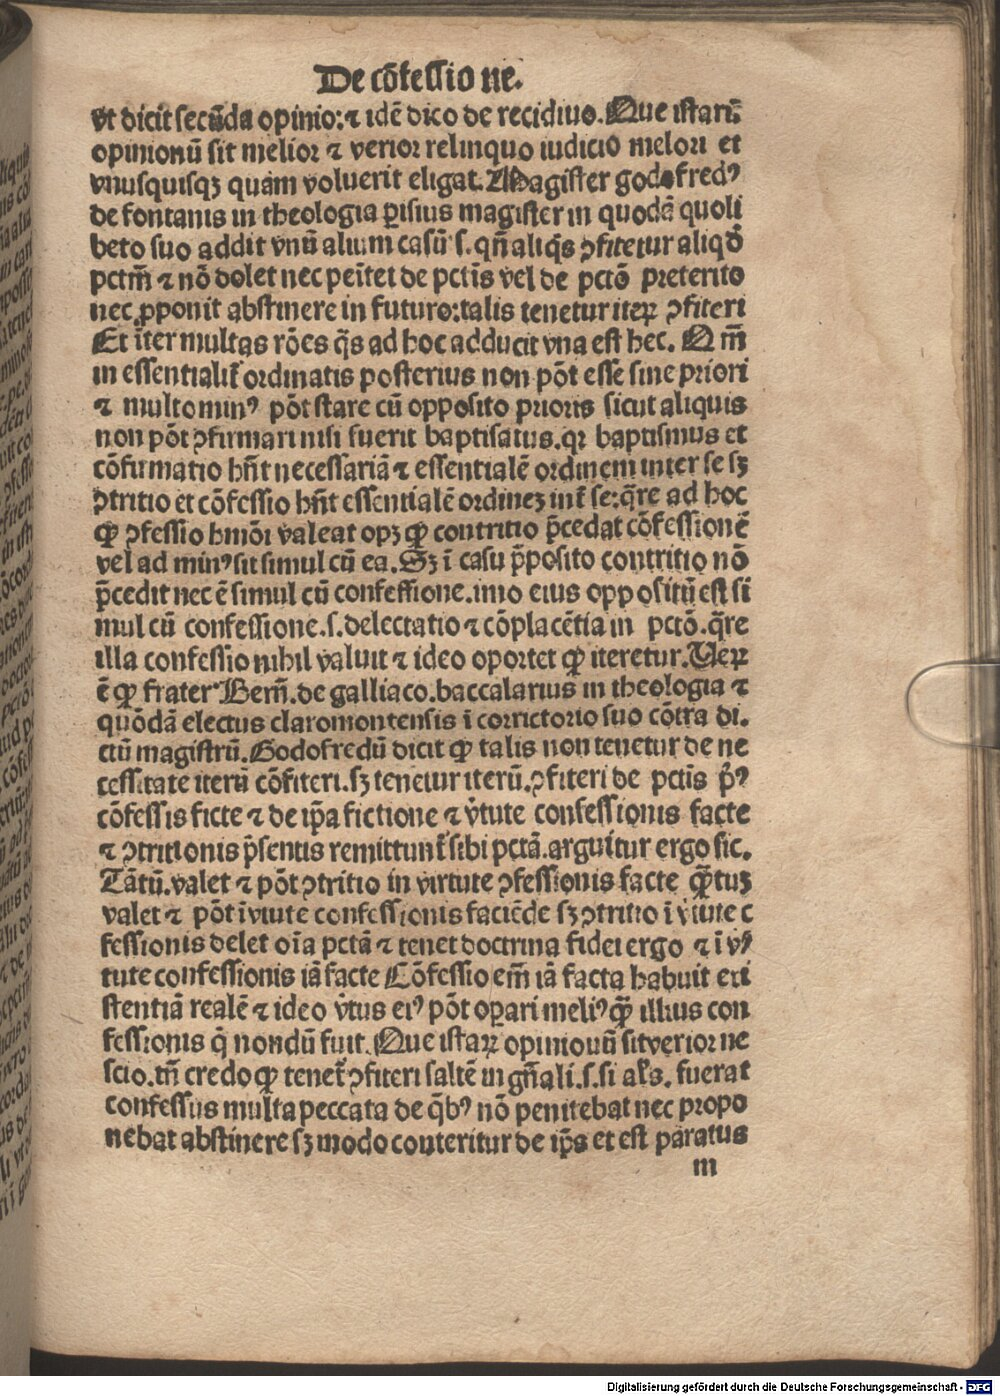 De cõfessio ne.
vt dicit secũda opinio: ⁊ idẽ dico de recidiuo. Que istarũ
opinionũ sit melior ⁊ verior relinquo iudicio meliori et
vnusquisqꝫ quam voluerit eligat. Magister godofredꝰ
de fontanis in theologia ꝑisius magister in quodã quoli
beto suo addit vnũ alium casũ .s. qñ aliq̃s ↄfitetur aliqđ
pctm̃ ⁊ nõ dolet nec penĩtet de pctĩs vel de pctõ preterito
nec ꝓponit abstinere in futuro: talis tenetur iteꝝ ↄfiteri
Et ĩter multas rões q̃s ad hoc adducit vna est hec. Q m̃
in essentialit̃ ordinatis posterius non põt esse sine priori
⁊ multominꝰ põt stare cũ opposito prioris sicut aliquis
non põt ↄfirmari nisi fuerit baptisatus. qr baptismus et
cõfirmatio hñt necessariã ⁊ essentialẽ ordinem inter se sꝫ
ↄtritio et cõfessio hñt essentialẽ ordineꝫ int̃ se: q̃re ad hoc
ꝙ ↄfessio hmõi valeat opꝫ ꝙ contritio p̃cedat cõfessionẽ
vel ad minꝰ sit simul cũ ea. Sꝫ ĩ casu p̃posito contritio nõ
p̃cedit nec ẽ simul cũ confessione. imo eius oppositũ est si
mul cũ confessione .s. delectatio ⁊ cõplacẽtia in pctõ. q̃re
illa confessio nihil valuit ⁊ ideo oportet ꝙ iteretur. Veꝝ
ẽ ꝙ frater Berñ. de galliaco. baccalarius in theologia ⁊
quõdã electus claromontensis ĩ corrictorio suo cõtra di.
ctũ magistrũ. Godofredũ dicit ꝙ talis non tenetur de ne
cessitate iterũ cõfiteri. sꝫ tenetur iterũ. ↄfiteri de pctĩs p̃ꝰ
cõfessis ficte ⁊ de ip̃a fictione ⁊ ṽtute confessionis facte
⁊ ↄtritionis p̃sentis remittunt̃ sibi pctã. arguitur ergo sic.
Tãtũ. valet ⁊ põt ↄtritio in virtute ↄfessionis facte q̃ꝫtuꝫ
valet ⁊ põt ĩ viute confessionis faciẽde sꝫ ↄtritio ĩ viute c
fessionis delet oĩa pctã ⁊ tenet doctrina fidei ergo ⁊ ĩ vꝰ
tute confessionis iã facte Cõfessio em̃ iã facta habuit exi
stentiã realẽ ⁊ ideo ṽtus eiꝰ põt oꝑari meliꝰ ꝙ̃ illius con
fessionis q̃ nondũ fuit. Que istaꝝ opinionũ sit verior ne
scio. tñ credo ꝙ tenet̃ ↄfiteri saltẽ in gñali .s. si als̃. fuerat
confessus multa peccata de q̃bꝰ nõ penitebat nec propo
nebat abstinere sꝫ modo conteritur de ip̃s et est paratus
m
Digitalisierung gefördert durch die Deutsche Forschungsgemeinschaft - DFG